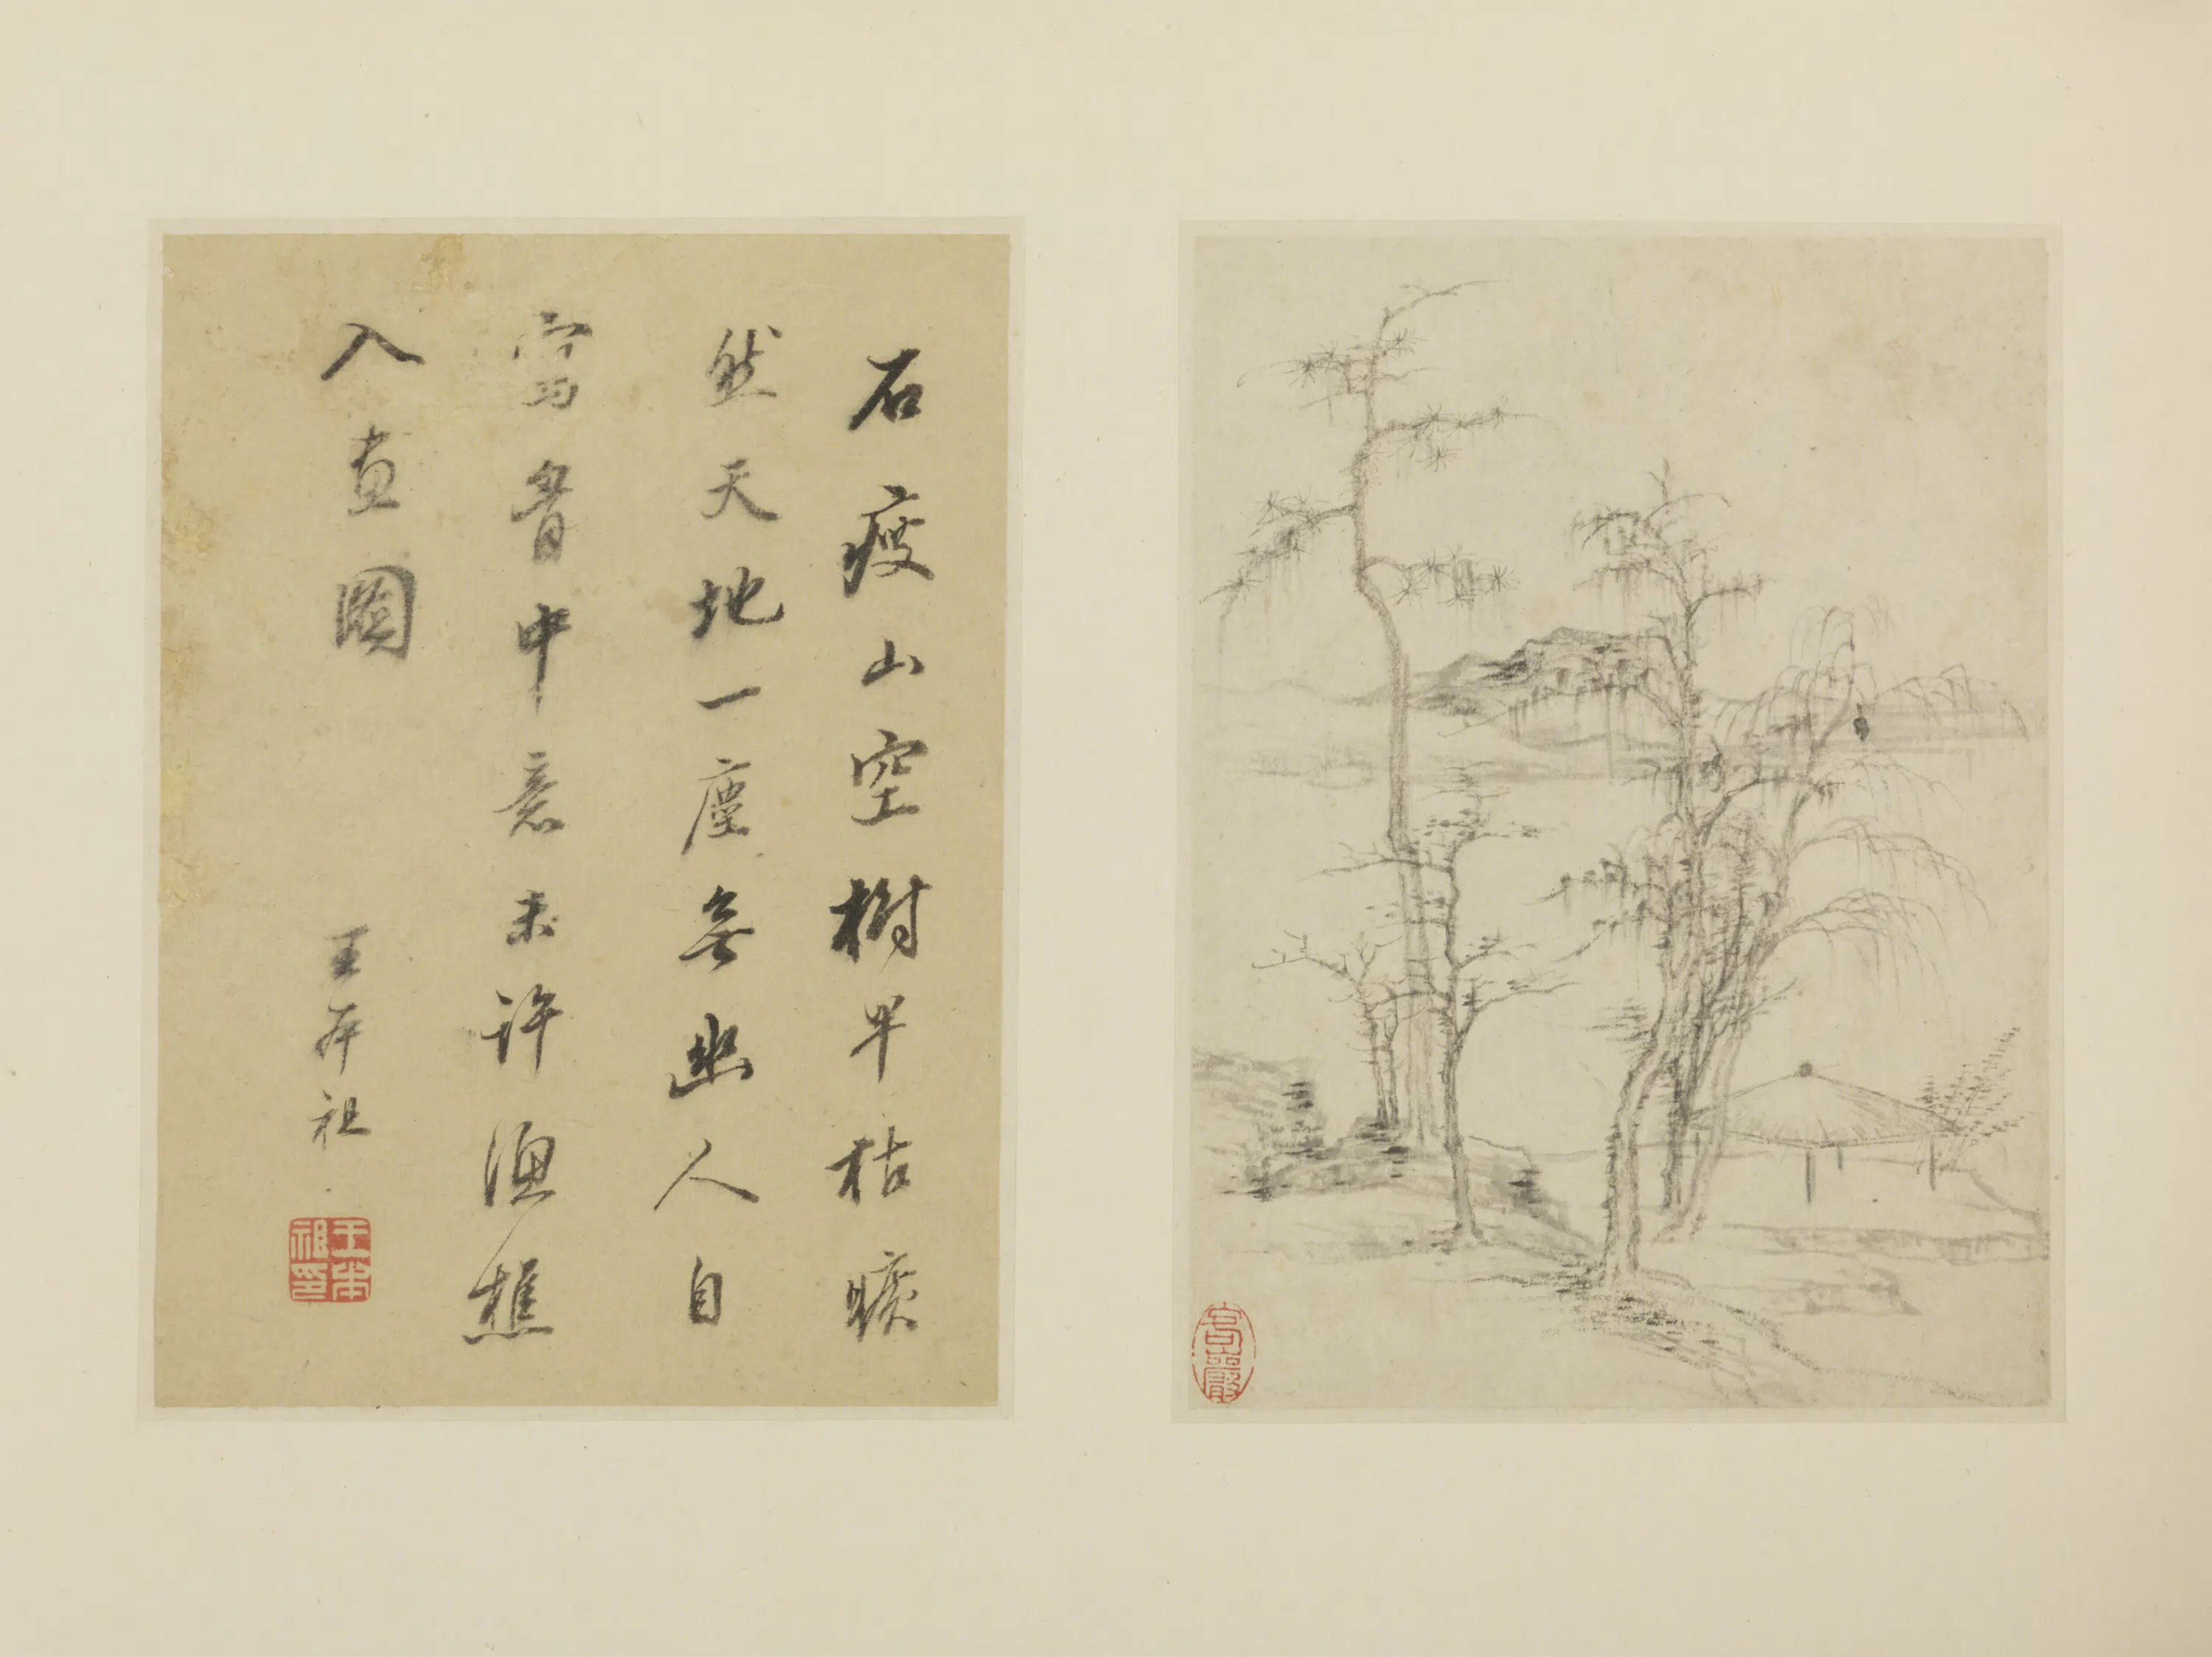 石瘦山空樹早枯曠
然天地一塵無幽人自
寫胷中意未許漁樵
入畫圖
王本祖
王本祖印